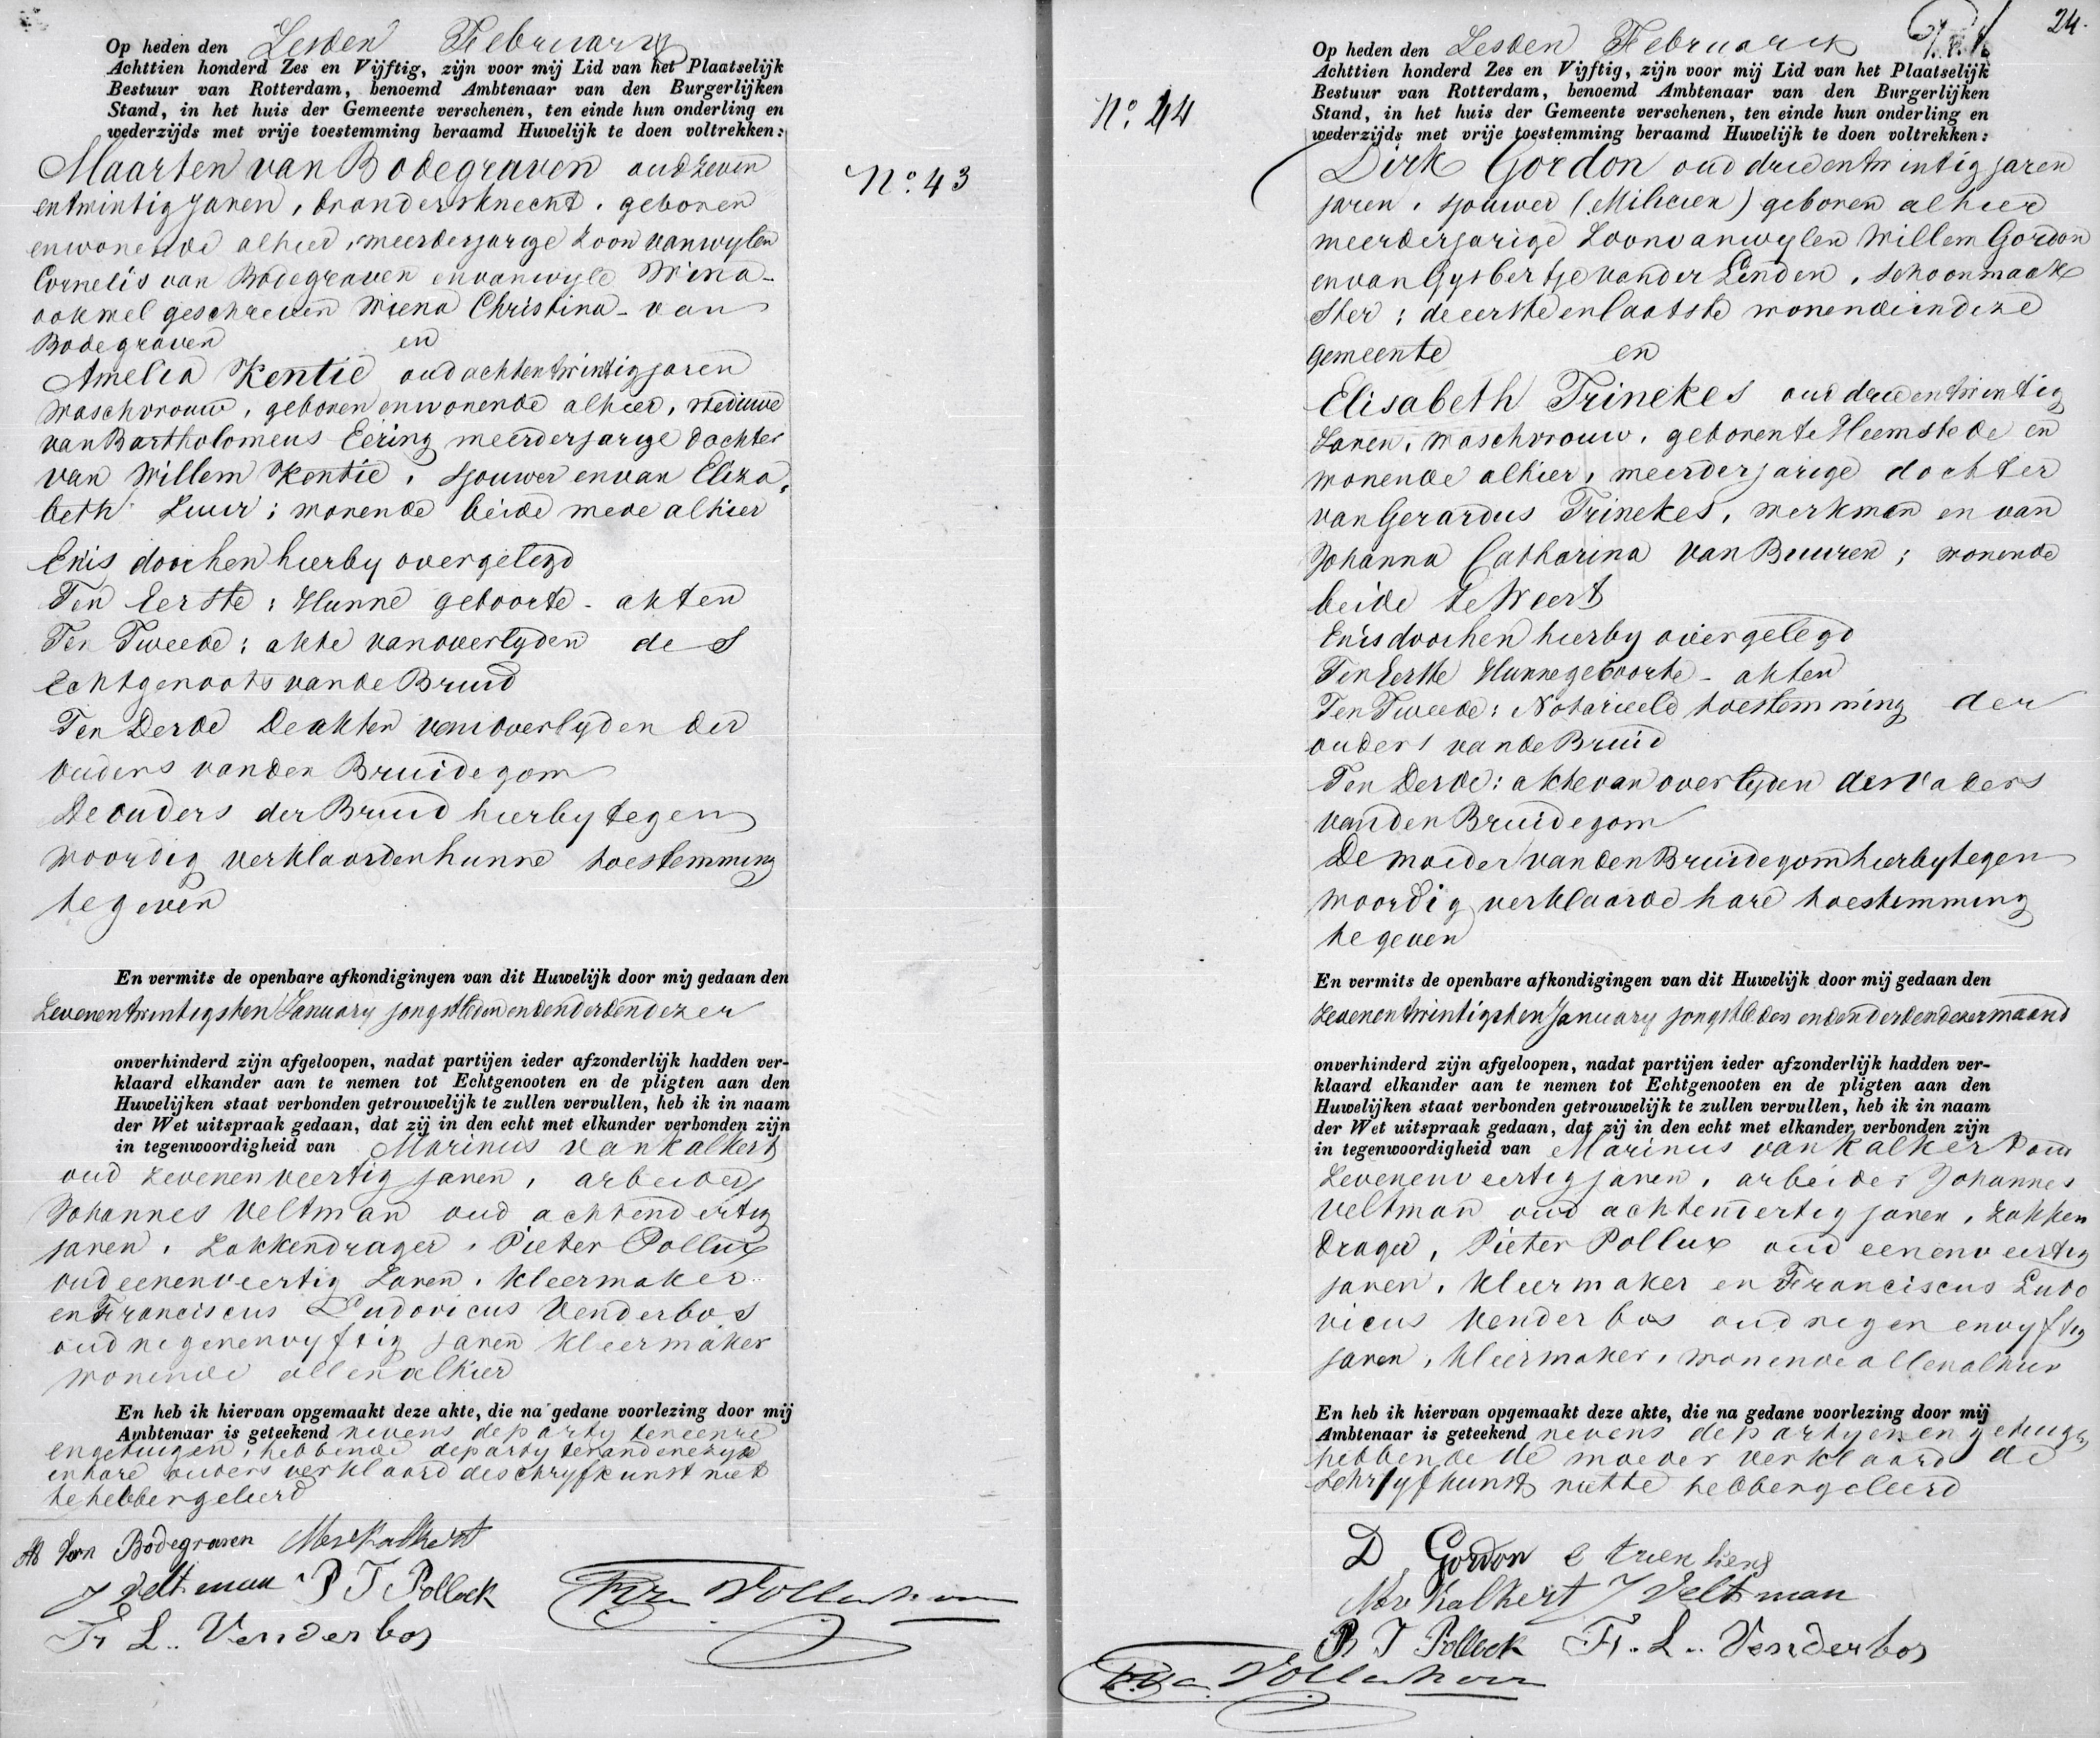 Op heden den Zesden February
Achttien honderd Zes en Vijftig, zijn voor mij Lid van het Plaatselijk
Bestuur van Rotterdam, benoemd Ambtenaar van den Burgerlijken
Stand, in het huis der Gemeente verschenen, ten einde hun onderling en
wederzijds met vrije toestemming beraamd Huwelijk te doen voltrekken:
Maarten van Bodegraven oud zeven
entwintig Jaren, brandersknecht, geboren
en wonende alhier, meerderjarige Zoon van wylen
Cornelis van Bodegraven en van wyle Wina
ook wel geschreven Wiena Christina van
Bodegraven en
Amelia Kentie oud achtentwintig jaren
Waschvrouw, geboren en wonende alhier, Weduwe
van Bartholomeus Eering meerderjarige dochter
van Willem Kentie, sjouwer en van Eliza,
beth Zuur; wonende beide mede alhier
En is door hen hierby overgelegd
Ten Eerste: Hunne geboorte-akten
Ten Tweede: akte van overlyden des
Echtgenoots van de Bruid
Ten Derde De akten van overlyden der
Ouders van den Bruidegom
De ouders der Bruid hierby tegen
woordig verklaarden hunne toestemming
te geven
En vermits de openbare afkondigingen van dit Huwelijk door mij gedaan den
Zevenentwintigsten January jongstleden en den derden dezer
onverhinderd zijn afgeloopen, nadat partijen ieder afzonderlijk hadden ver-
klaard elkander aan te nemen tot Echtgenooten en de pligten aan den
Huwelijken staat verbonden getrouwelijk te zullen vervullen, heb ik in naam
der Wet uitspraak gedaan, dat zij in den echt met elkander verbonden zijn
in tegenwoordigheid van Marinus van Kalkert
oud zevenenveertig jaren, arbeider,
Johannes Veltman oud achtendertig
jaren, Zakkendrager, Pieter Pollux
oud eenenveertig Jaren, Kleermaker
en Franciscus Ludovicus Venderbos
oud negenenvyftig jaren Kleermaker
wonende allen alhier
En heb ik hiervan opgemaakt deze akte, die na gedane voorlezing door mij
Ambtenaar is geteekend nevens de party ter eenre
en getuigen, hebbende de party ter andere zyde
en hare ouders verklaard de schryfkunst niet
te hebben geleerd
M van Bodegraven M v Kalkert
J Veltman P J Pollock
Fr L.. Venderbos
No. 43
24.
No. 44
Op heden den Zesden Februarij
Achttien honderd Zes en Vijftig, zijn voor mij Lid van het Plaatselijk
Bestuur van Rotterdam, benoemd Ambtenaar van den Burgerlijken
Stand, in het huis der Gemeente verschenen, ten einde hun onderling en
wederzijds met vrije toestemming beraamd Huwelijk te doen voltrekken:
Dirk Gordon oud drieentwintig jaren
jaren, sjouwer (Milicien) geboren alhier
meerderjarige Zoon van wylen Willem Gordon
en van Gysbertje van der Linden, Schoonmaak
ster; de eerste en laatste wonende in deze
gemeente en
Elisabeth Trinekes oud drieentwintig
Jaren, Waschvrouw, geboren te Heemstede en
wonende alhier, meerderjarige dochter
van Gerardus Trinekes, werkman en van
Johanna Catharina van Buuren; wonende
beide te Weert
En is door hen hierby overgelegd
Ten Eerste Hunne geboorte-akten
Ten Tweede: Notarieele toestemming der
ouders van de Bruid
Ten Derde: akte van overlyden des Vaders
van den Bruidegom
De moeder van den Bruidegom hierby tegen
woordig verklaarde hare toestemming
te geven
En vermits de openbare afkondigingen van dit Huwelijk door mij gedaan den
Zevenentwintigsten January jongstleden en den derden dezer maand
onverhinderd zijn afgeloopen, nadat partijen ieder afzonderlijk hadden ver-
klaard elkander aan te nemen tot Echtgenooten en de pligten aan den
Huwelijken staat verbonden getrouwelijk te zullen vervullen, heb ik in naam
der Wet uitspraak gedaan, dat zij in den echt met elkander verbonden zijn
in tegenwoordigheid van Marinus van Kalkert oud
Zevenenveertig jaren, arbeider Johannes
Veltman oud achtendertig jaren, Zakken
drager, Pieter Pollux oud eenenveertig
jaren, Kleermaker en Franciscus Ludo
vicus Venderbos oud negenenvyftig
jaren, Kleermaker, wonende allen alhier
En heb ik hiervan opgemaakt deze akte, die na gedane voorlezing door mij
Ambtenaar is geteekend nevens de partyen en getuigen
hebbende de moeder verklaard de
Schryfkunst niet te hebben geleerd
D Gordon E trienkens
M v Kalkert J Veltman
P J Pollock Fr. L.. Venderbos